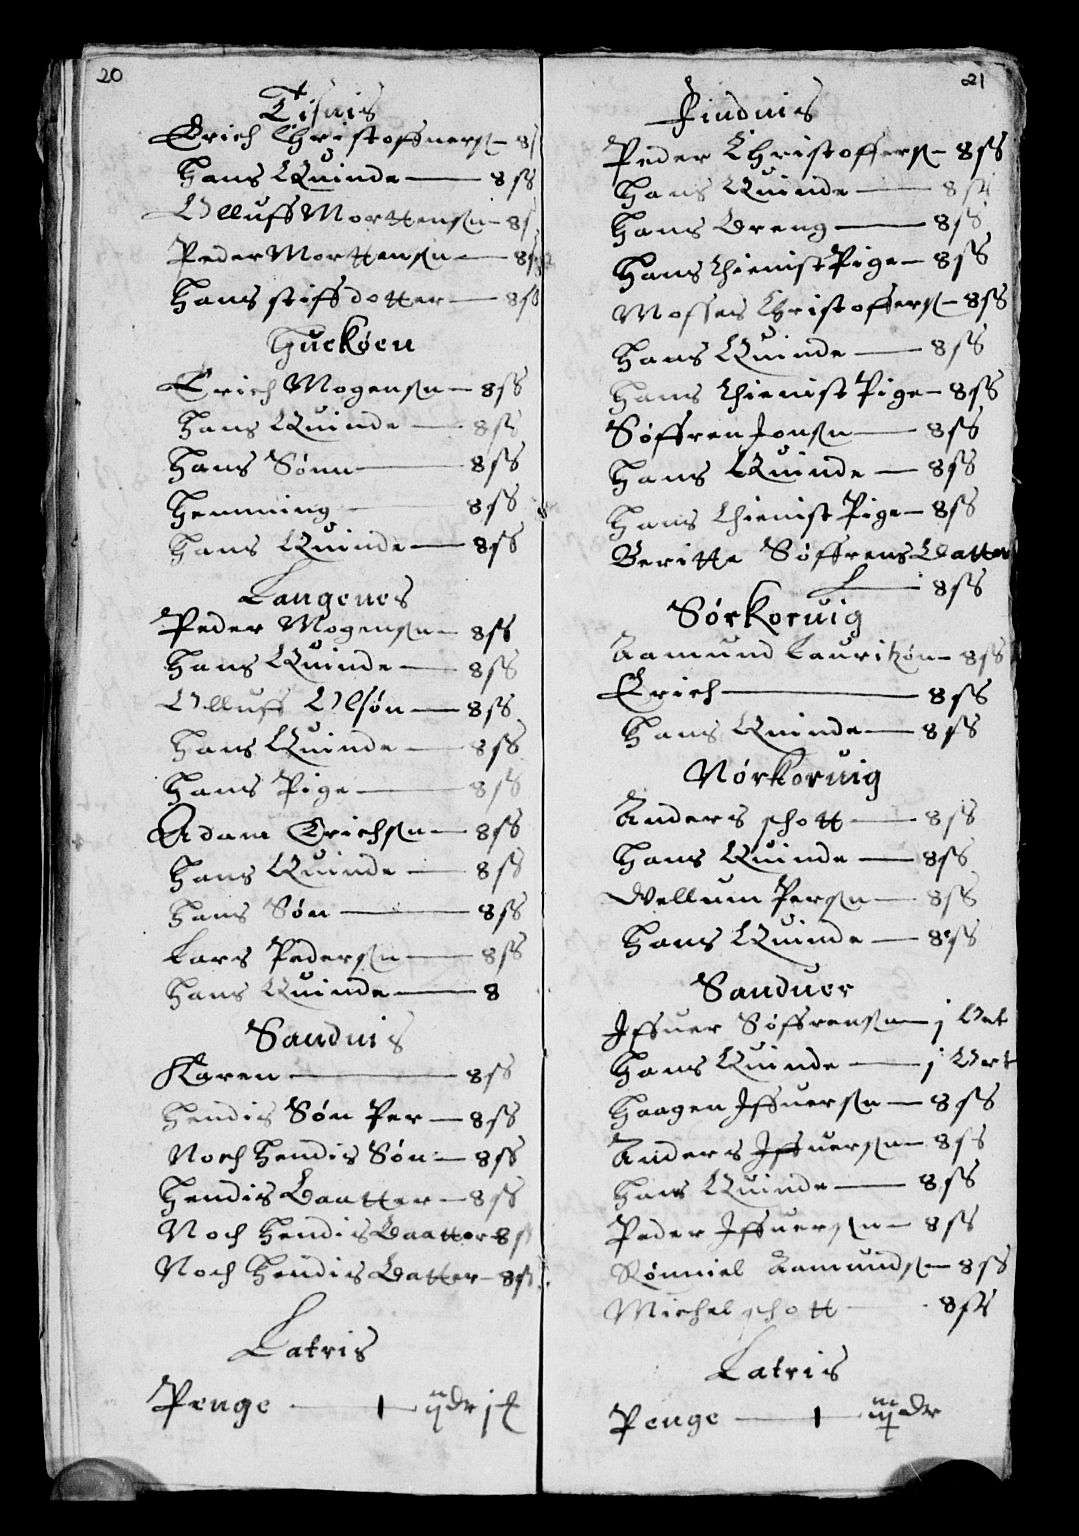 20
Tisnis
Erich Christoffuersn — 8 s
Hans Quinde — 8 sß
Olluff Mortensn — 8 s
Peder Mortensn — 8 sß
Hans stiffdotter — 8 sß
Huekøen
Erich Mogensn — 8 sß
Hans Quinde — 8 sß
Hans Sønn — 8 sß
Hemming — 8 sß
Hans Quinde — 8 sß
Langenes
Peder Mogensn — 8 sß
Hans Quinde — 8 sß
Olluff Olsøn — 8 sß
Hans Quinde — 8 sß
Hans Pige — 8 sß
Adam Erichsn — 8 sß
Hans Quinde — 8 sß
Hans Søn — 8 sß
Lars Pedersn — 8 sß
Hans Quinde — 8
Sandnis
Karen — 8 sß
Hendis Søn Per — 8 sß
Noch Hendis Søn — 8 sß
Hendis Daatter — 8 sß
Noch Hendis Daatter 8 s
Noch Hendis Datter — 8 s
Latris
Penge — 1 — ij dr j
21
Findnis
Peder Christoffersn — 8 sß
Hans Quinde — 8 sß
Hans Dreng — 8 sß
Hans thienist Pige — 8 sß
Mosses Christoffersn — 8 sß
Hans Quinde — 8 sß
Hans thienist Pige — 8 sß
Søffren Jonsn — 8 sß
Hans Quinde — 8 sß
Hans thienist Pige — 8 sß
Beritte Søffrens Datter
— 8 sß
Sørkoruig
Aamund Lauritzøn — 8 sß
Erich — 8 sß
Hans Quinde — 8 sß
Nørkoruig
Anders schott — 8 sß
Hans Quinde — 8 sß
Vellum Persn — 8 sß
Hans Quinde — 8 sß
Sanduer
Iffuer Søffrensn — j Ort
Hans Quinde — j Ort
Haagen Iffuersn — 8 sß
Anders Iffuersn — 8 sß
Hans Quinde — 8 sß
Peder Iffuersn — 8 sß
Rønniel Aamundsn — 8 sß
Michel schott — 8 sß
Latris
Penge — 1 — iij dr